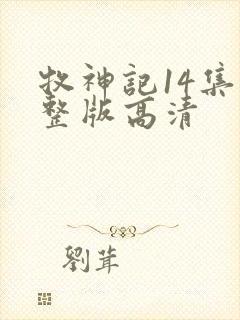 牧神記14集
整版高清
劉茸